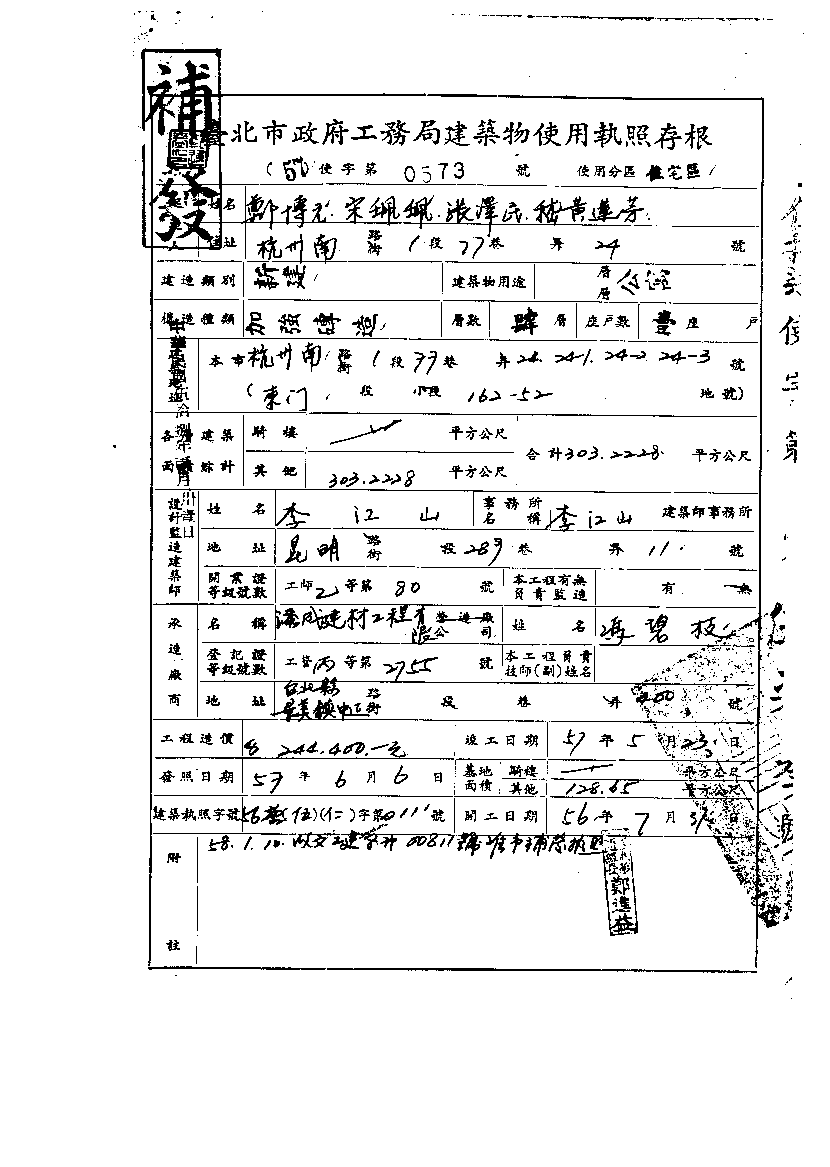 補發
臺北市政府工務局建築物使用執照存根
(57 使字第 0573 號 使用分區 住宅區
姓名 鄭博 宋珮珮 張澤民 黃蓮芳
住址 杭州南 路街 1段 77巷 弄 24 號
建造類別 新建 建築物用途 層 層 公寓
構造種類 加強磚造 層數 肆 層 座戶數 壹座 戶
本市 杭州南 路街 1段 77巷 弄 24. 24-1. 24-2. 24-3 號
(東门 段 小段 162-52 地號)
各層建築 面積綜計 騎樓 平方公尺 合計303.2228 平方公尺
其他 303.2228 平方公尺
設計監造建築師 姓名 李江山 事務所名稱 李江山 建築師事務所
地址 昆明 路街 段 283 巷 弄 11 號
開業證等級號數 工師乙等第 80 號 本工程有無負責監造 有 無
承造廠商 名稱 建材工程有限公司 營造廠 姓名 馮碧枝
登記證等級號數 工營丙等第 2755 號 本工程負責技師(副)姓名
地址 台北縣 鎮中正 路街 段 巷 弄 400 號
工程造價 244.400.-元 竣工日期 57年5月23日
發照日期 57年6月6日 基地面積 騎樓 平方公尺
其他 128.65 平方公尺
建築執照字號 56 (伍)(仁)字第0111號 開工日期 56年7月31日
附註 58.1.10. 00817號准予補發執照
鄭進益